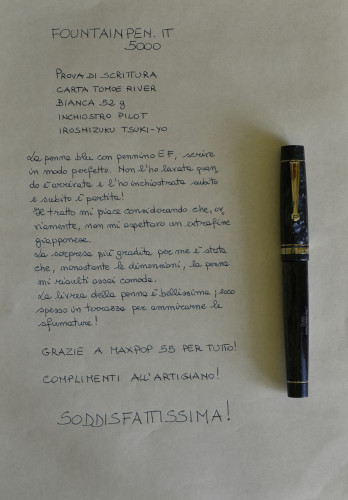 FOUNTAINPEN.IT
5000
PROVA DI SCRITTURA
CARTA TOMOE RIVER
BIANCA 52 g
INCHIOSTRO PILOT
IROSHIZUKU TSUKI-YO
La penna blu con pennino EF, scrive
in modo perfetto. Non l'ho lavata quan
do è arrivata e l'ho inchiostrata subito
e subito è partita!
Il tratto mi piace considerando che, ov
viamente, non mi aspettavo un extrafine
giapponese.
La sorpresa più gradita per me è stata
che, nonostante le dimensioni, la penna
mi risulti assai comoda.
La livrea della penna è bellissima, esco
spesso in terrazza per ammirarne le
sfumature!
GRAZIE A MAXPOP 55 PER TUTTO!
COMPLIMENTI ALL'ARTIGIANO!
SODDISFATTISSIMA!